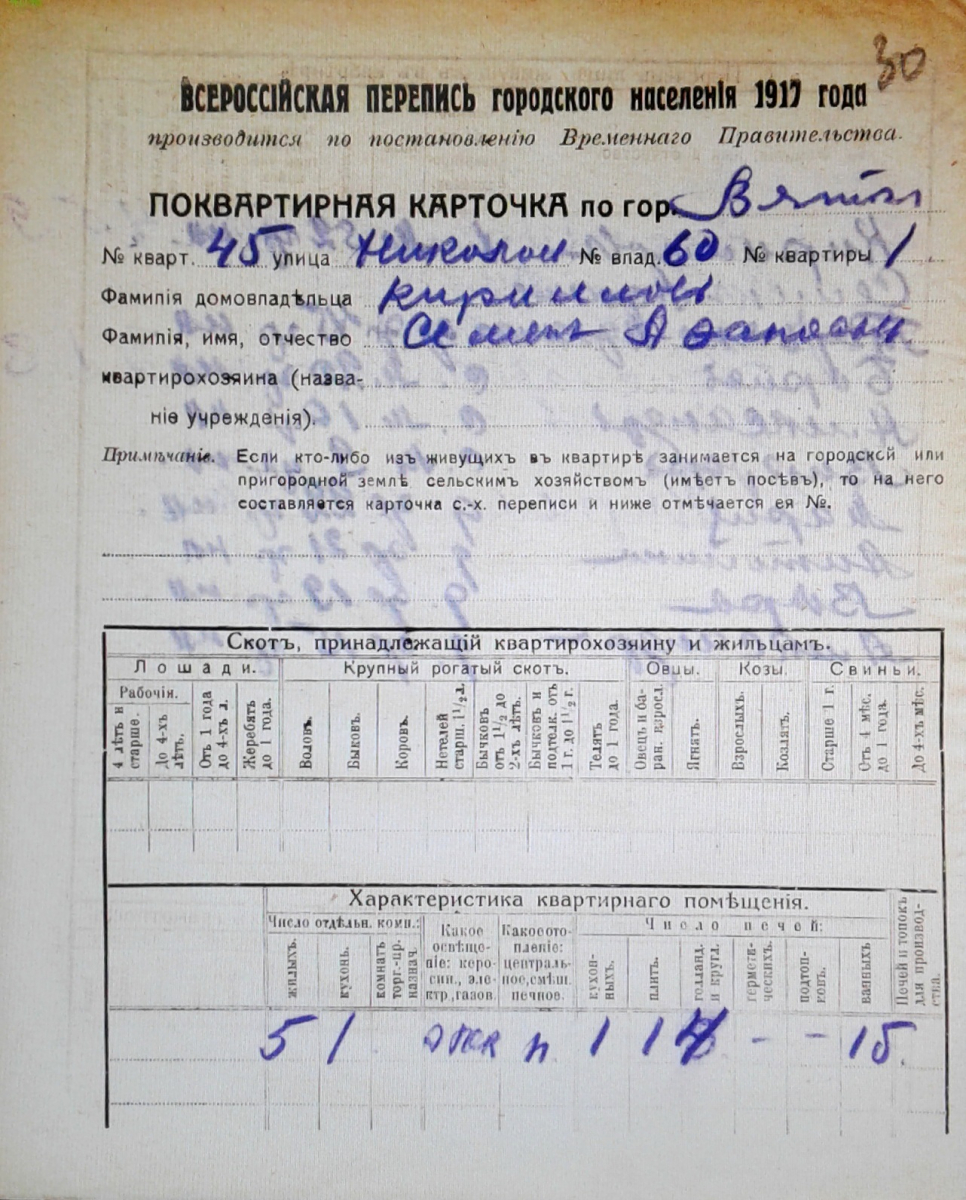 30
ВСЕРОССІЙСКАЯ ПЕРЕПИСЬ городского населенія 1917 года
производится по постановленію Временнаго Правительства.
ПОКВАРТИРНАЯ КАРТОЧКА по гор. Вятки
№ кварт. 45 улица Николаи № влад. 60 № квартиры 1
Фамилія домовладѣльца Кирилловъ
Фамилія, имя, отчество Семенъ
квартирохозяина (назва-
ніе учрежденія).
Примѣчаніе. Если кто-либо изъ живущихъ въ квартирѣ занимается на городской или
пригородной землѣ сельскимъ хозяйствомъ (имѣетъ посѣвъ), то на него
составляется карточка с.-х. переписи и ниже отмѣчается ея №.
Скотъ, принадлежащій квартирохозяину и жильцамъ.
Лошади. Крупный рогатый скотъ. Овцы. Козы. Свиньи.
Рабочія.
4 лѣтъ и старше. До 4-хъ лѣтъ. Отъ 1 года до 4-хъ л. Жеребятъ до 1 года. Воловъ. Быковъ. Коровъ. Нетелей старш. 1½ л. Бычковъ отъ 1½ до 2-хъ лѣтъ. Бычковъ и подтелк. отъ 1 г. до 1½ г. Телятъ до 1 года. Овецъ и ба- ран. взросл. Ягнятъ. Взрослыхъ. Козлятъ. Старше 1 г. Отъ 4 мѣс. до 1 года. До 4-хъ мѣс.
Характеристика квартирнаго помѣщенія.
Число отдѣльн. комн.: Какое освѣще- ніе: керо- син., эле- ктр., газов. Какое ото- пленіе: централь- ное, смѣш. печное. Число печей: Печей и топокъ для производ- ства.
жилыхъ. кухонь. комнатъ торг.-пр. назнач. кухон- ныхъ. плитъ. голланд. и кругл. гермети- ческихъ. подтоп- ковъ. ванныхъ
5 1 элек п 1 1 4 - - 1 5.